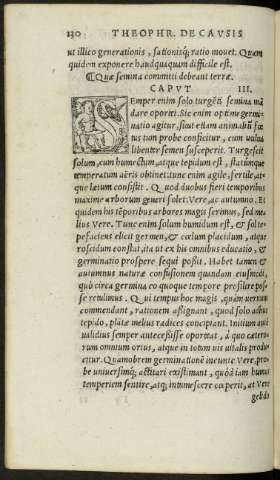 130 THEOPHR. DE CAVSIS
ut illico generationis, sationisq; ratio mouet. Quam
quidem exponere haudquaquam difficile est.
¶ Quæ semina committi debeant terræ.
CAPVT III.
Semper enim solo turgẽti semina mã
dare oportet. Sic enim optime germi-
natio agitur, sicut etiam animaliũ fœ
tus tum probe conficitur, cum uulua
libenter semen susceperit. Turgescit
solum, cum humectum, atque tepidum est, statumque
temperatum aëris obtinet: tunc enim agile, fertile, at-
que lætum consistit. Quod duobus fieri temporibus
maxime arborum generi solet. Vere, ac autumno. Et
quidem his tẽporibus arbores magis serimus, sed me-
lius Vere. Tunc enim solum humidum est, & sol te-
pefaciens elicit germen, & cœlum placidum, atque
roscidum constat, ita ut ex his omnibus educatio, &
germinatio prospere sequi possit. Habet tamen &
autumnus naturæ confusionem quandam eiusmodi,
quò circa germina eo quoque tempore prosilire pos-
se retulimus. Qui tempus hoc magis, quàm uernum
commendant, rationem assignant, quod solo adhuc
tepido, plãtæ melius radices concipiant. Initium aũt
ualidius semper antecessisse oportet, à quo cætero-
rum omnium ortus, atque in totum uis uitalis produ-
citur. Quamobrem germinationẽ ineunte Vere, pro-
be uniuersimq; affectari existimant, quòd iam humus
temperiem sentire, atq; intumescere cœperit, at Vere